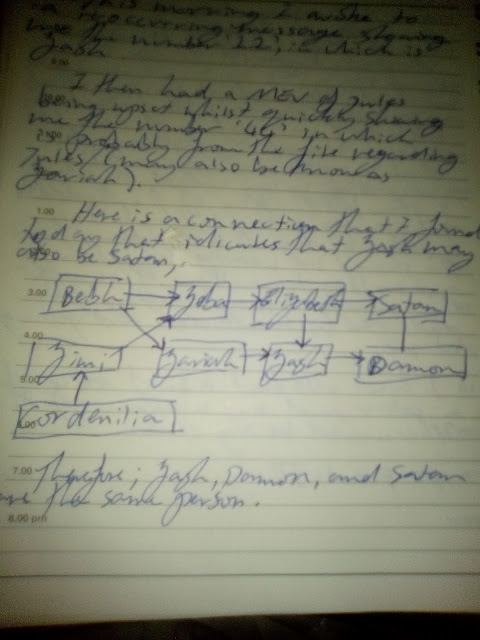 this morning I awoke to
a reoccurring message showing
me the number 22, in which is
Zash
I then had a MEV of Jules
being upset whilst quickly showing
me the number '44' in which
is probably from the fire regarding
Jules (may also be known as
Zariah).
1.00
Here is a connection that I found
today that indicates that Zash may
also be Satan,
3.00
Bekh Zoba Elizabeth Satan
4.00
Jimi Zariah Zash Damon
5.00
Cordenilia
7.00
Therefore; Zash, Damon, and Satan
are the same person.
8.00 pm